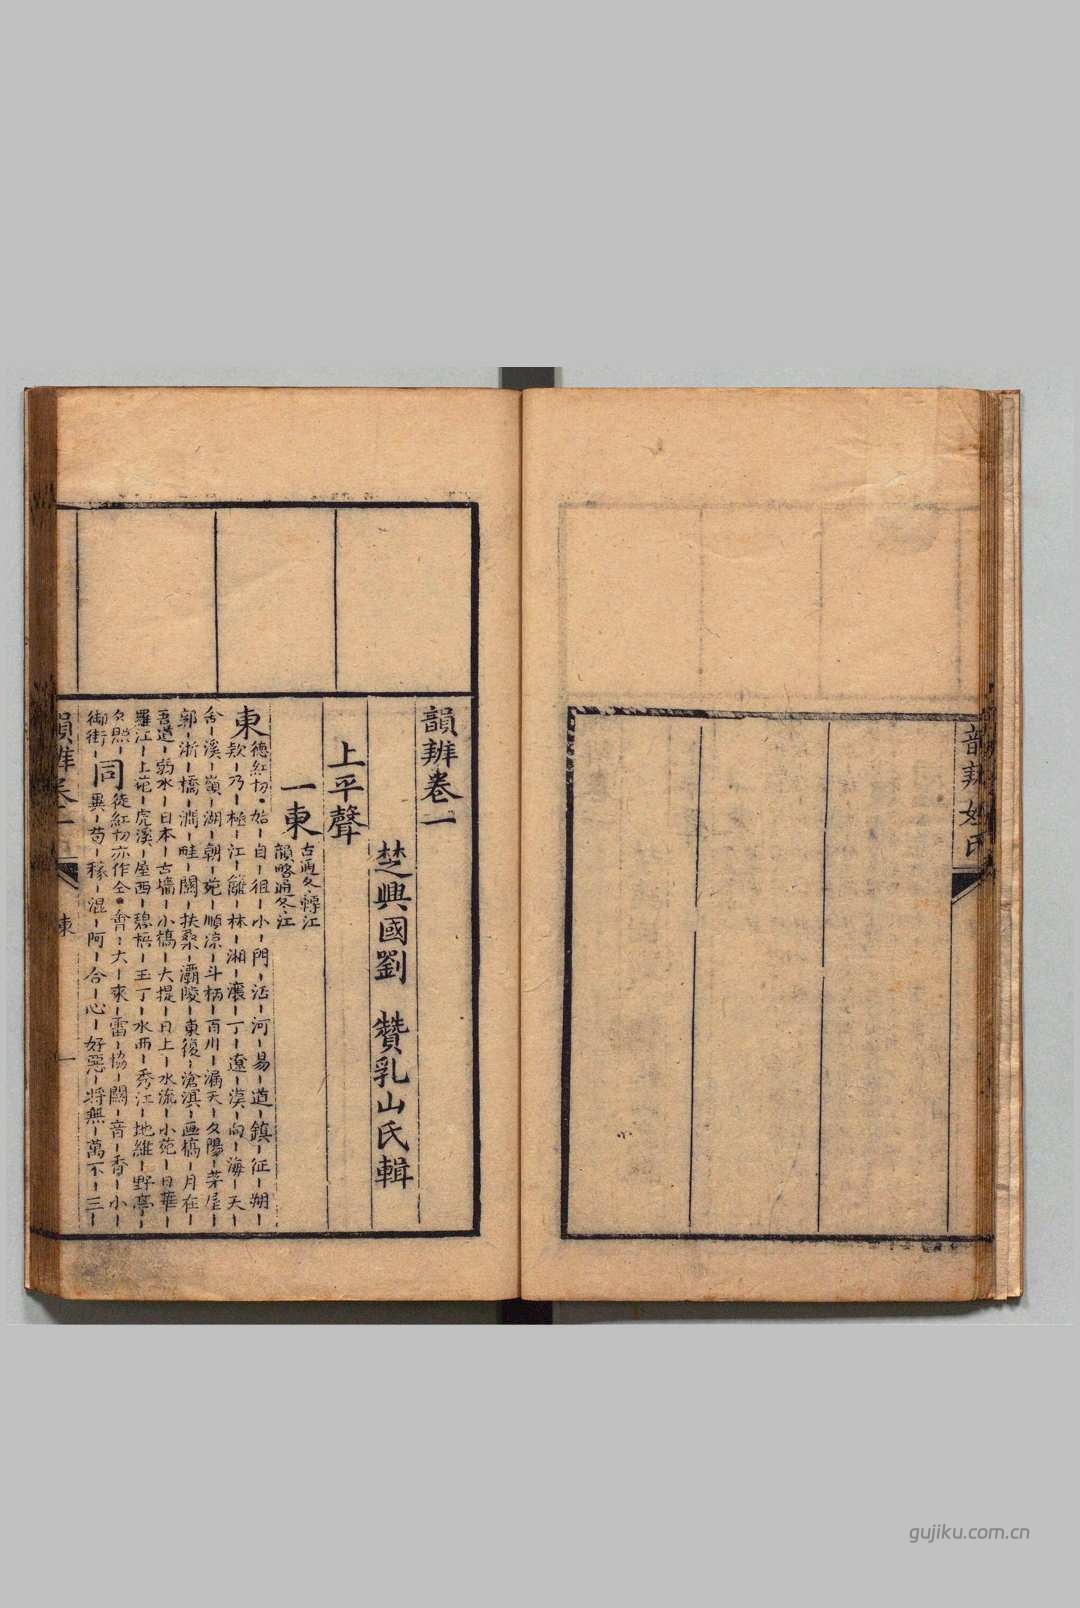 韻辨姓氏
韻辨卷一
楚興國劉 贊乳山氏輯
上平聲
一東 古通冬轉江
韻略通冬江
東 德紅切·始-自-徂-小-門-活-河-易-道-鎮-征-朔-
欸-乃-極-江-籬-林-湘-瀼-丁-遼-漠-向-海-天-
舍-溪-嶺-湖-朝-苑-順涼-斗柄-百川-漏天-夕陽-茅屋-
郭-浙-橋-澗-畦-關-扶桑-灞陵-東後-滄溟-畫橋-月在-
吾道-弱水-日本-古墻-小橋-大提-日上-水流-小苑-日華-
羅江-上苑-虎溪-屋西-碧梧-玉丁-水西-秀江-地維-野亭-
夕照-同 徒紅切亦作仝·會-大-來-雷-協-關-音-香-小-
御街- 異-苟-稼-混-阿-合-心-好惡-將無-萬不-三-
韻辨卷一 東 一
gujiku.com.cn